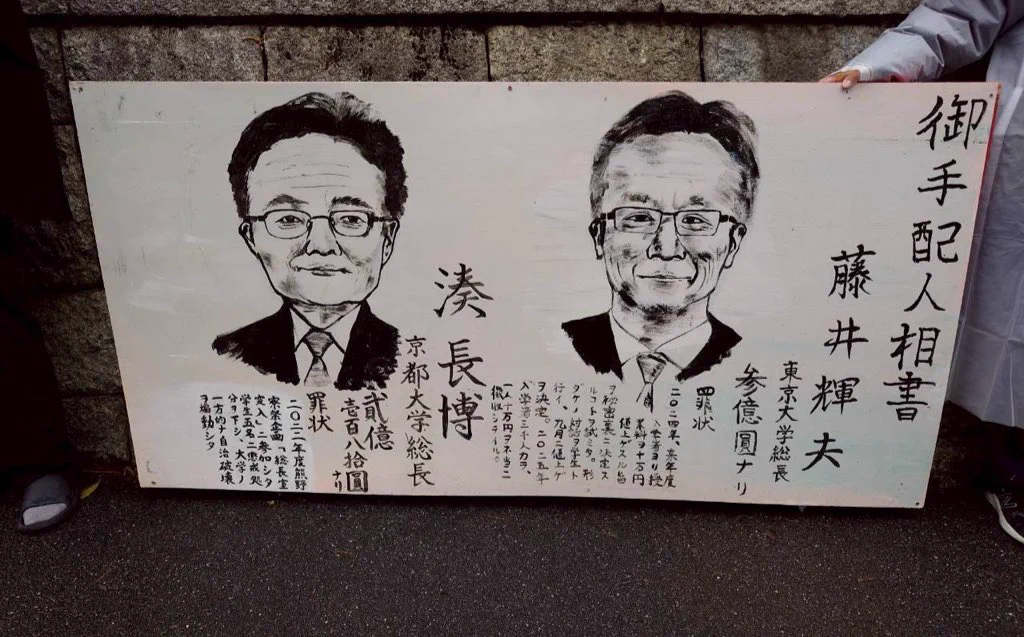 御手配人相書
藤井輝夫
東京大学総長
参億圓ナリ
罪状
二〇二四年、来年度
入学者ヨリ授
業料ヲ十万円
値上ゲスル旨
ヲ秘密裏ニ決定ス
ルコトヲ試ミタ。形
ダケノ対話ヲ学生ト
行イ、九月ニ値上ゲ
ヲ決定。二〇二五年
入学者三千人カラ、
一人十万円ヲ不当ニ
徴収シテイル。
湊長博
京都大学総長
貳億
壱百八拾圓
ナリ
罪状
二〇二一年度熊野
寮祭企画「総長室
突入」ニ参加シタ
学生五名ニ懲戒処
分ヲ下シ、大学ノ
一方的ナ自治破壊
ヲ煽動シタ